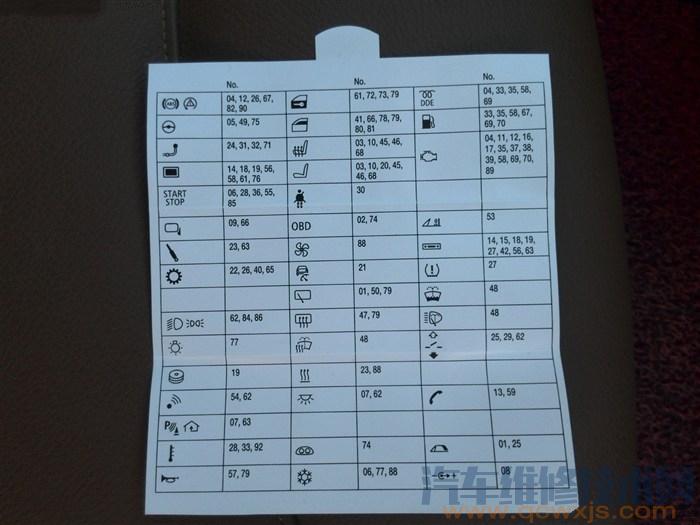 No. No. No.
04, 12, 26, 67, 61, 72, 73, 79 DDE 04, 33, 35, 58,
82, 90 69
05, 49, 75 41, 66, 78, 79, 33, 35, 58, 67,
80, 81 69, 70
24, 31, 32, 71 03, 10, 45, 46, 04, 11, 12, 16,
68 17, 35, 37, 38,
14, 18, 19, 56, 03, 10, 20, 45, 39, 58, 69, 70,
58, 61, 76 46, 68 89
START 06, 28, 36, 55, 30
STOP 85
09, 66 OBD 02, 74 53
23, 63 88 14, 15, 18, 19,
27, 42, 56, 63
22, 26, 40, 65 21 27
01, 50, 79 48
62, 84, 86 47, 79 48
77 48 25, 29, 62
19 23, 88
54, 62 07, 62 13, 59
P 07, 63
28, 33, 92 74 01, 25
57, 79 06, 77, 88 08
www.qcwxjs.com